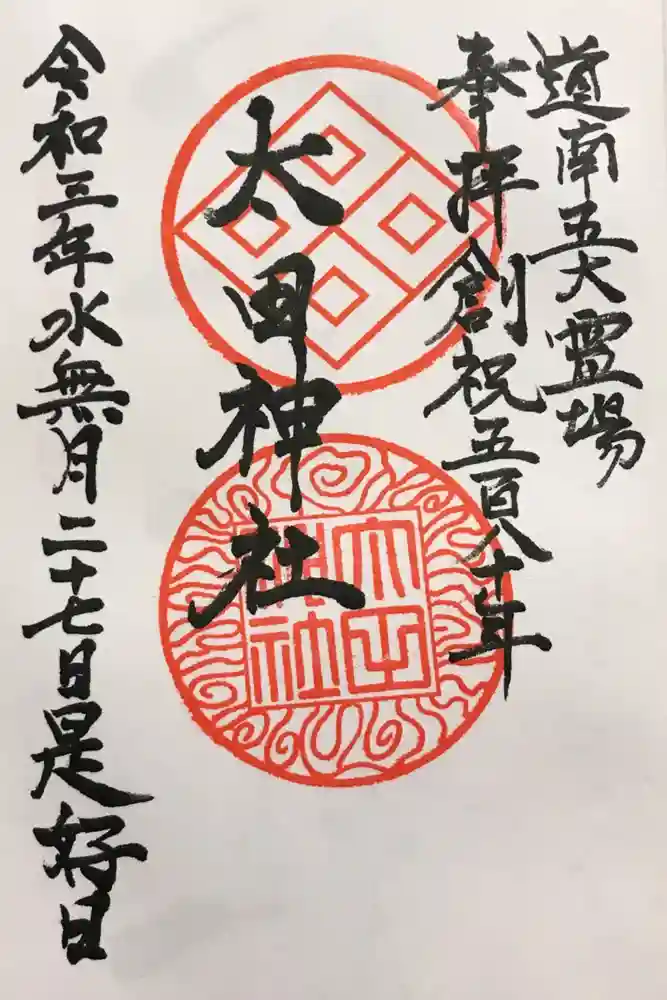 道南五大霊場
奉拝創祝五百八十年
太田神社
太田神社
令和三年水無月二十七日是好日